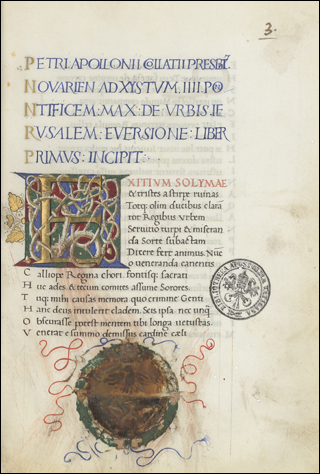 3.
PETRI APOLLONII COLLATII PRESBI.
NOVARIEN AD XYSTVM .IIII. PON
TIFICEM: MAX: DE VRBIS IE
RVSALEM: EVERSIONE: LIBER
PRIMVS: INCIPIT:
EXITIVM SOLYMAE
& tristes a stirpe ruinas
Totq; olim ducibus clara
tor Regibus Vrbem
Seruitio turpi & miseran
da Sorte subactam
Dicere fert animus. Nunc
o ueneranda canentis
Calliope Regina chori. fontisq; sacrati
Huc ades & tecum comites assume Sorores.
Tuq; mihi causas memora quo crimine Genti
Hanc deus intulerit cladem. Seis ipsa: nec unq
Obscurasse potest mentem tibi longa uetustas.
Venerat e summo demissus cardine cæli
BIBLIOTHECA APOSTOLICA VATICANA